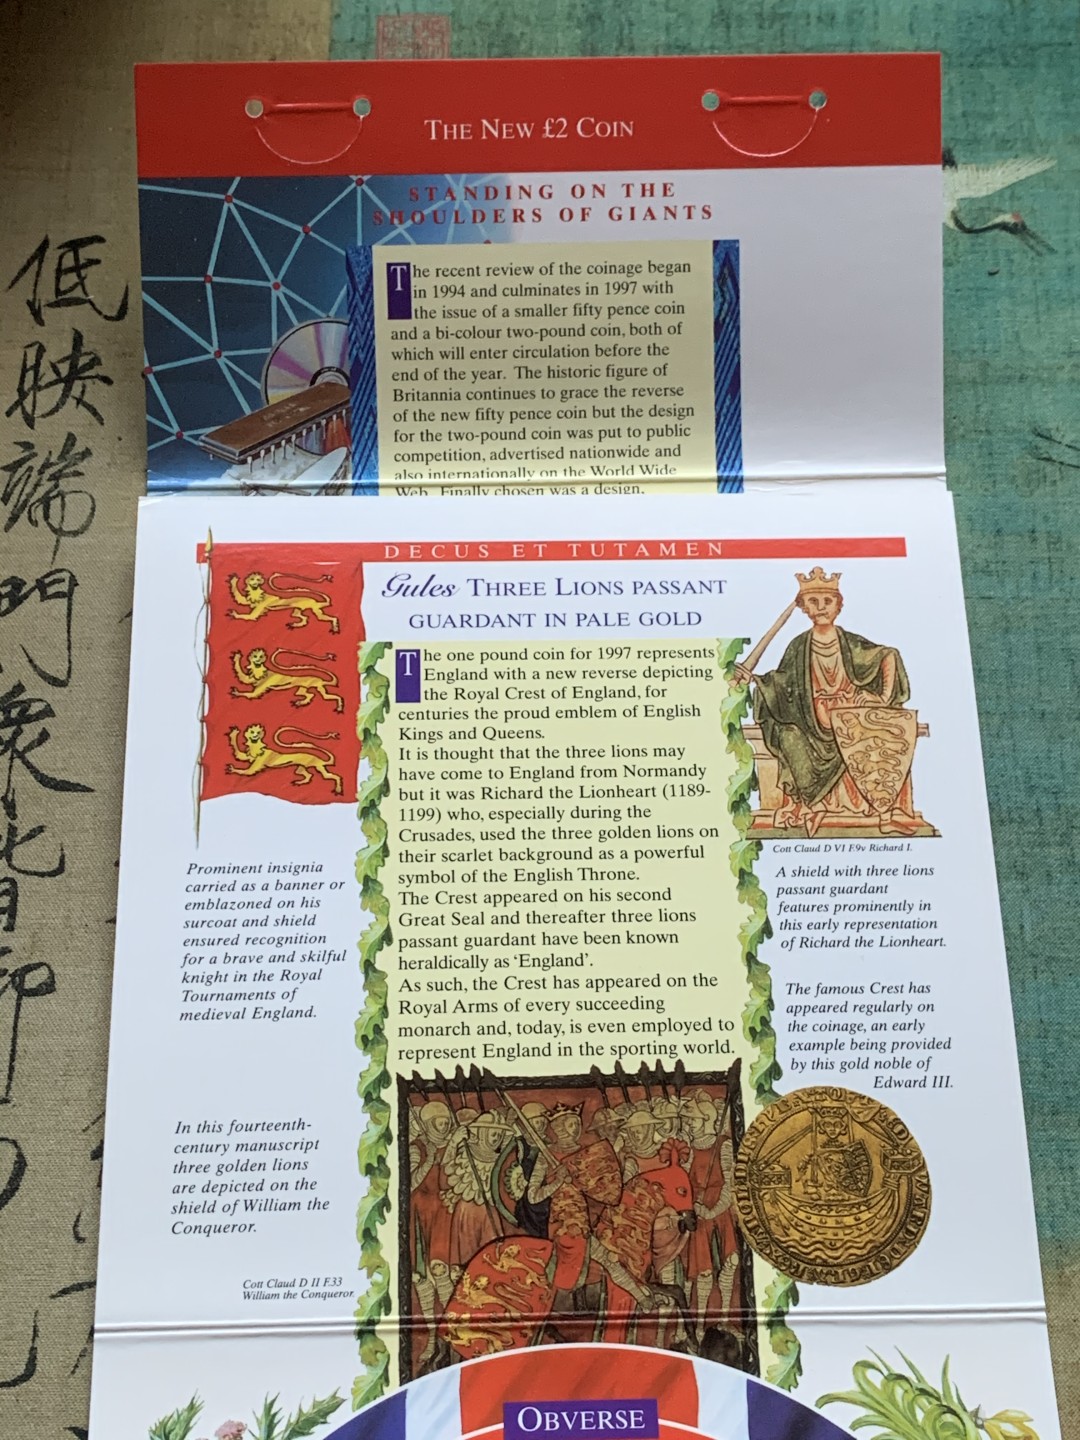 THE NEW £2 COIN
STANDING ON THE
SHOULDERS OF GIANTS
The recent review of the coinage began
in 1994 and culminates in 1997 with
the issue of a smaller fifty pence coin
and a bi-colour two-pound coin, both of
which will enter circulation before the
end of the year. The historic figure of
Britannia continues to grace the reverse
of the new fifty pence coin but the design
for the two-pound coin was put to public
competition, advertised nationwide and
also internationally on the World Wide
Web. Finally chosen was a design,
DECUS ET TUTAMEN
Gules THREE LIONS PASSANT
GUARDANT IN PALE GOLD
The one pound coin for 1997 represents
England with a new reverse depicting
the Royal Crest of England, for
centuries the proud emblem of English
Kings and Queens.
It is thought that the three lions may
have come to England from Normandy
but it was Richard the Lionheart (1189-
1199) who, especially during the
Crusades, used the three golden lions on
their scarlet background as a powerful
symbol of the English Throne.
The Crest appeared on his second
Great Seal and thereafter three lions
passant guardant have been known
heraldically as ‘England’.
As such, the Crest has appeared on the
Royal Arms of every succeeding
monarch and, today, is even employed to
represent England in the sporting world.
Prominent insignia
carried as a banner or
emblazoned on his
surcoat and shield
ensured recognition
for a brave and skilful
knight in the Royal
Tournaments of
medieval England.
In this fourteenth-
century manuscript
three golden lions
are depicted on the
shield of William the
Conqueror.
Cott Claud D II F.33
William the Conqueror.
Cott Claud D VI F.9v Richard I.
A shield with three lions
passant guardant
features prominently in
this early representation
of Richard the Lionheart.
The famous Crest has
appeared regularly on
the coinage, an early
example being provided
by this gold noble of
Edward III.
OBVERSE
低
映
端
門